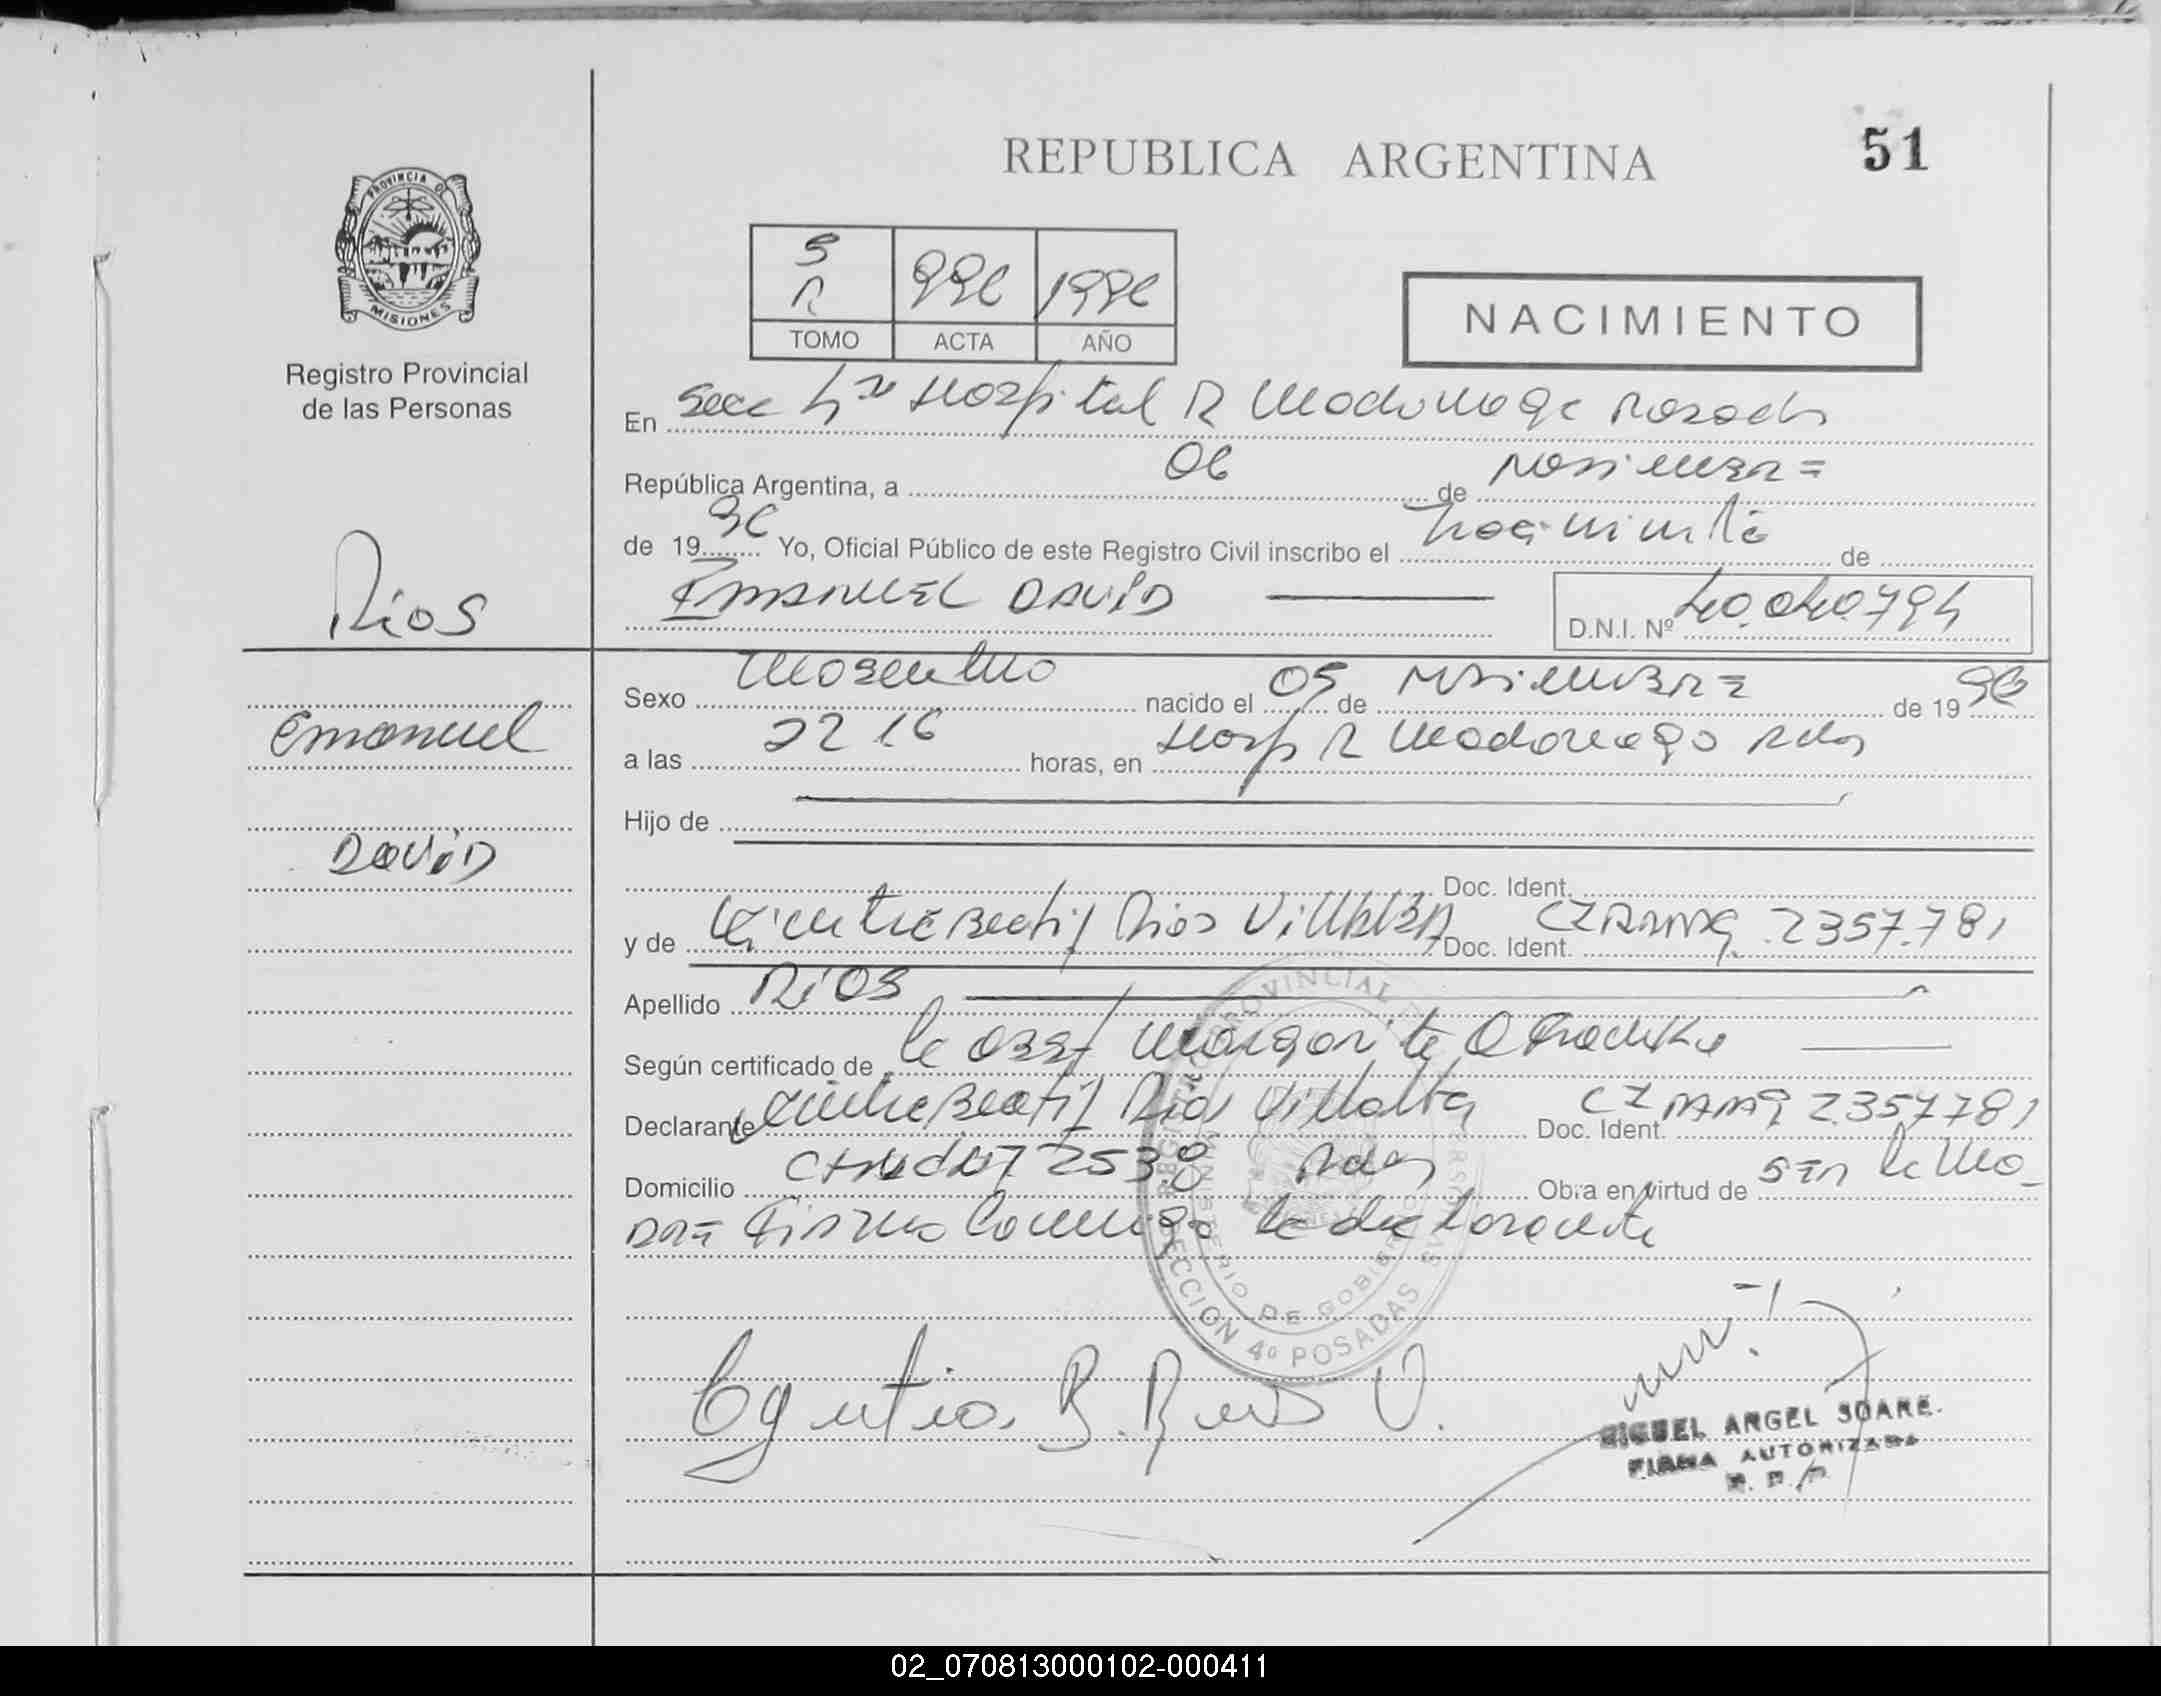 REPUBLICA ARGENTINA
51
PROVINCIA DE
MISIONES
Registro Provincial
de las Personas
5
R
996
1996
TOMO
ACTA
AÑO
NACIMIENTO
En Secc 4ta Hospital R Madariaga Posadas
República Argentina, a 06 de Noviembre
de 1996 Yo, Oficial Público de este Registro Civil inscribo el Nacimiento de
EMANUEL DAVID
D.N.I. Nº 40.040.794
Rios
Emanuel
DAVID
Sexo Masculino nacido el 05 de Noviembre de 1996
a las 22 16 horas, en Hosp R Madariaga Pdas
Hijo de
Doc. Ident.
y de Beatriz Rios Villalba Doc. Ident. 2357.781
Apellido RIOS
Según certificado de la Obst Margarita
Declarante Beatriz Rios Villalba Doc. Ident. 2357781
Domicilio 2538 Pdas Obra en virtud de ser la Ma_
dre Firma Conmigo la declarante
REGISTRO PROVINCIAL DE LAS PERSONAS
MINISTERIO DE GOBIERNO
SECCION 4º POSADAS
B. Rios V.
MIGUEL ANGEL SOARE.
FIRMA AUTORIZADA
R. P. P.
02_070813000102-000411